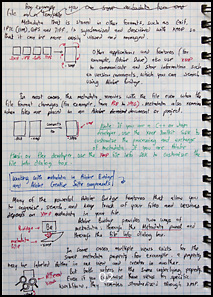 For example,
metadata template
Metadata that is stored in other formats, such as Exif,
IPTC (IIM), GPS and TIFF, is synchronized and described with XMP so
that it can be more easily viewed and managed.
Other applications and features (for
example, Adobe Drive) also use XMP
to communicate and store information such
as version comments, which you can search
using Adobe Bridge.
In most cases the metadata remains with the file even when the
file format changes (for example, from PSD to JPG). Metadata also remains
when files are placed in an Adobe document or project.
Note: If you are a C++ or Java
developer, use the XMP Toolkit SDK to
customize the processing and exchange
of metadata. If you are Adobe
Flash or Flex developer, use the XMP File Info SDK to customize the
File Info dialog box.
Working with metadata in Adobe Bridge
and Adobe Creative Suite components
Many of the powerful Adobe Bridge features that allow you
to organize, search, and keep track of your files and versions
depends on XMP metadata in your file
Adobe Bridge provides two ways of
metadata: through the Metadata panel and
through the File Info dialog box.
Bridge
Be
metadata
In some cases, multiple views exists for the
same metadata property. For example, a property
may be labeled Author in one view and Creator in another,
but both refers to the same underlying property.
Even if you customize these views for specific
workflows, they remain standardized through XMP.